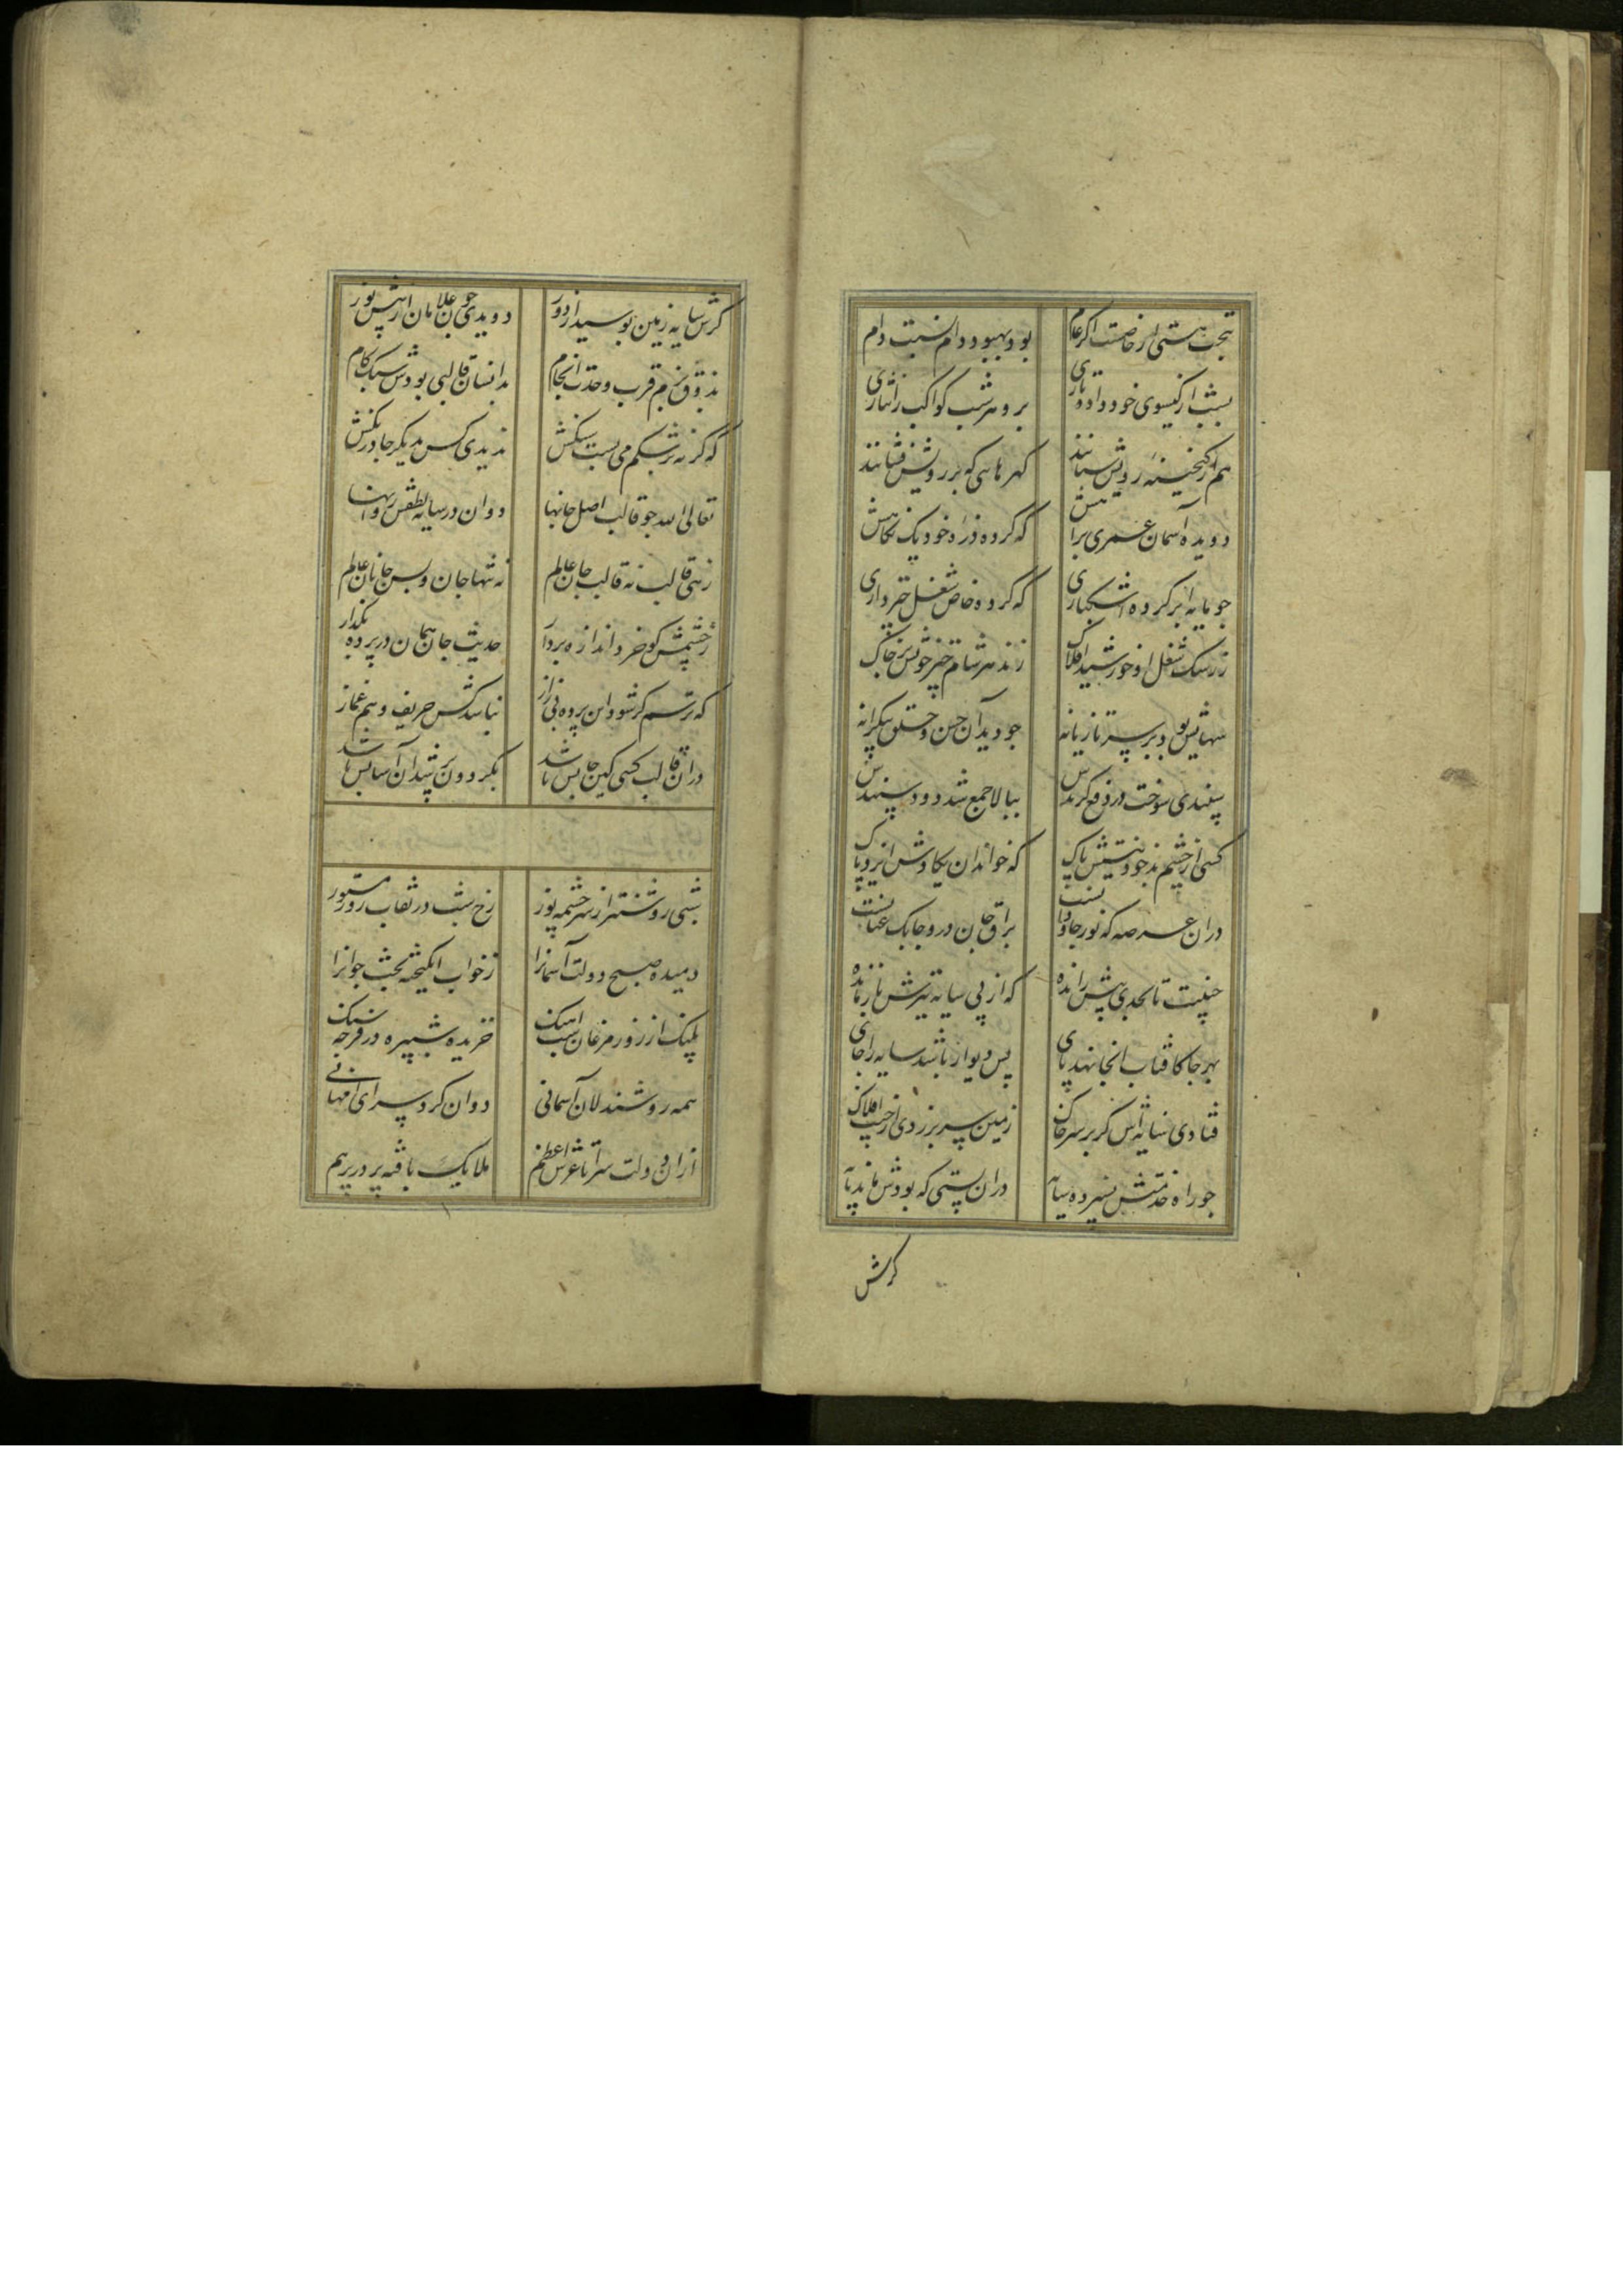 بجنب هستی از خاصست اگر عام بود بهبود دام نسبت دام
بشب از گیسوی خود داده یاری برو هر شب کواکب را نثاری
هم از گنجینه رویش ستانند گهرهایی که بر رویش فشانند
دویده آسمان عمری براهش که کرده ذره خود یک نگاهش
چو مایه ابر کرده اشکباری که کرده خاص شغل چترداری
ز رشک شغل او خورشید افلاک زند هر شام چتر خویش بر خاک
بود بر سر تازیانه چو دید آن حسن و خلق بیکرانه
سپندی سوخت در دفع گزندش ببالا جمع شد دود سپندش
کسی از چشم بد جو نیستش باک که خواند ان یکادش ایزد پاک
دران عرصه که نور جاودانست براق جان درو چابک عنانست
جنیبت تا بحدی پیش رانده که از پی سایه نیزش باز مانده
بهر جا کافتاب آنجا نهد پای پس دیوار باشد سایه را جای
فتادی سایه‌اش گر بر سر خاک زمین سر برزدی از جیب افلاک
چو راه خدمتش نسپرده سایه دران پستی که بودش ماند پایه
گرش
گرش سایه زمین بوسیدی از دور دویدی چون غلامان از پیش نور
بذوق بزم قرب وحدت انجام بدانسان قالبی بودش سبک گام
که گرنه بر شکم می بست سنگش ندیدی کس دیگر جا درنگش
تعالی الله چو قالب اصل جانها دوان در سایه لطفش روانها
زهی قالب نه قالب جان عالم نه تنها جان و بس جانان عالم
ز چشمش گو خرد اندازه بردار حدیث جان همان در پرده بگذار
که ترسم گر شود این پرده بی راز نباشد کس حریف وهم غماز
دران قالب کسی کین جا بس باشد بگردون بر شدن آسانش باشد
شبی روشنتر از سرچشمه نور رخ شب در نقاب روز مستور
دمیده صبح دولت آسمانرا ز خواب انگیخته بخت جوانرا
پلنگ از زور مرغان شب آهنگ خزیده شبپره در فرجه سنگ
همه روشندلان آسمانی دوان گرد سرای امهانی
ازان دولت سرا تا عرش اعظم ملایک بافته پر در پر هم